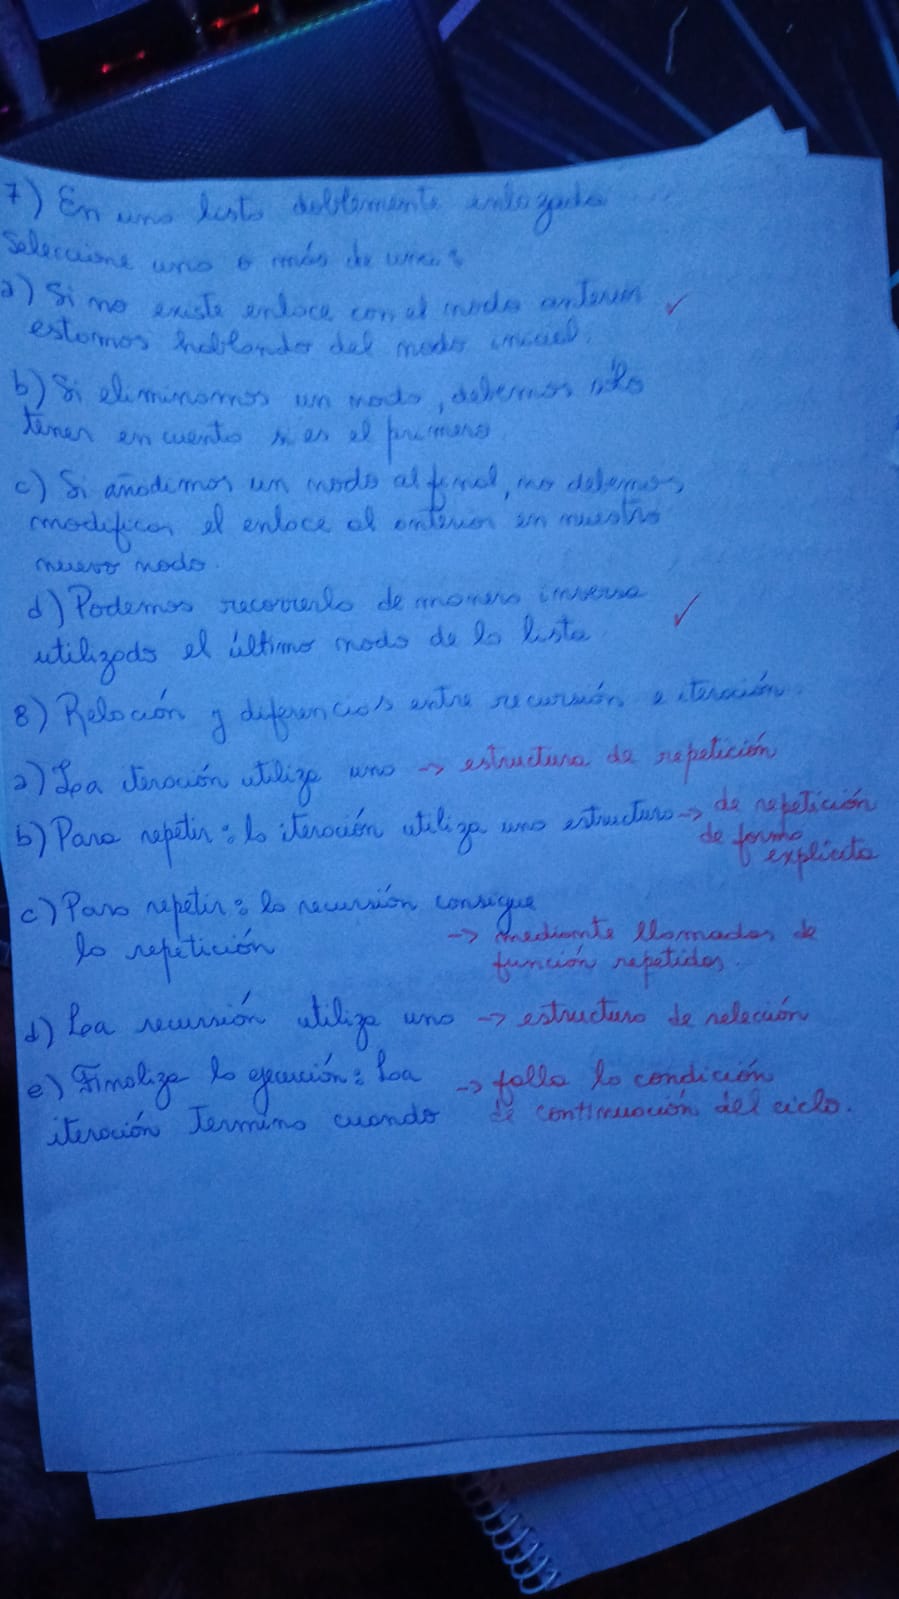 7) En una lista doblemente enlazada ...
Seleccione una o más de una:
a) Si no existe enlace con el nodo anterior ✓
estamos hablando del nodo inicial.
b) Si eliminamos un nodo, debemos sólo
tener en cuenta si es el primero
c) Si añadimos un nodo al final, no debemos
modificar el enlace al anterior en nuestro
nuevo nodo.
d) Podemos recorrerla de manera inversa ✓
utilizado el último nodo de la lista.
8) Relación y diferencias entre recursión e iteración.
a) La iteración utiliza una → estructura de repetición
b) Para repetir: la iteración utiliza una estructura → de repetición
de forma
explícita
c) Para repetir: la recursión consigue
la repetición → mediante llamadas de
función repetidas.
d) La recursión utiliza una → estructura de selección
e) Finaliza la ejecución: La → falla la condición
iteración termina cuando de continuación del ciclo.